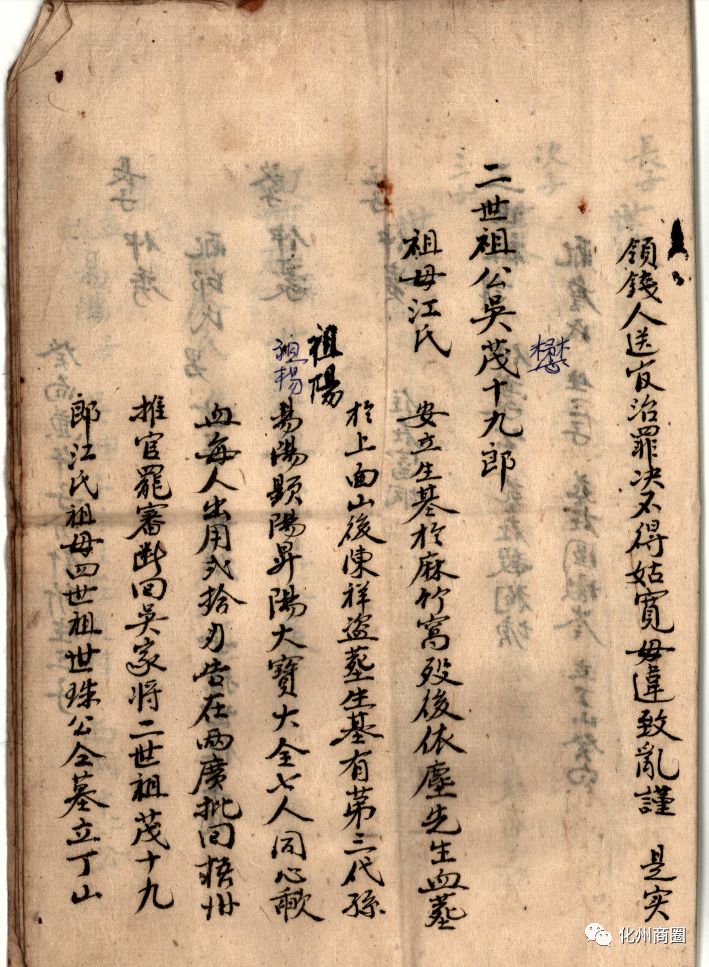 領錢人送官治罪决不得姑寬毋違致亂謹 是实
二世祖公吳茂十九郎
懋
祖母江氏 安立生基於麻竹窩殁後依塵先生血墓
於上面山後陳祥盗墓生基有苐三代孫
祖陽
祖揚
昜陽顯陽昇陽大寶大全七人同心歃
血每人出用弍拾刃告在两廣批回梧州
推官罷審断回吳家将二世祖茂十九
郎江氏祖母四世祖世珠公仝墓立丁山
化州商圈